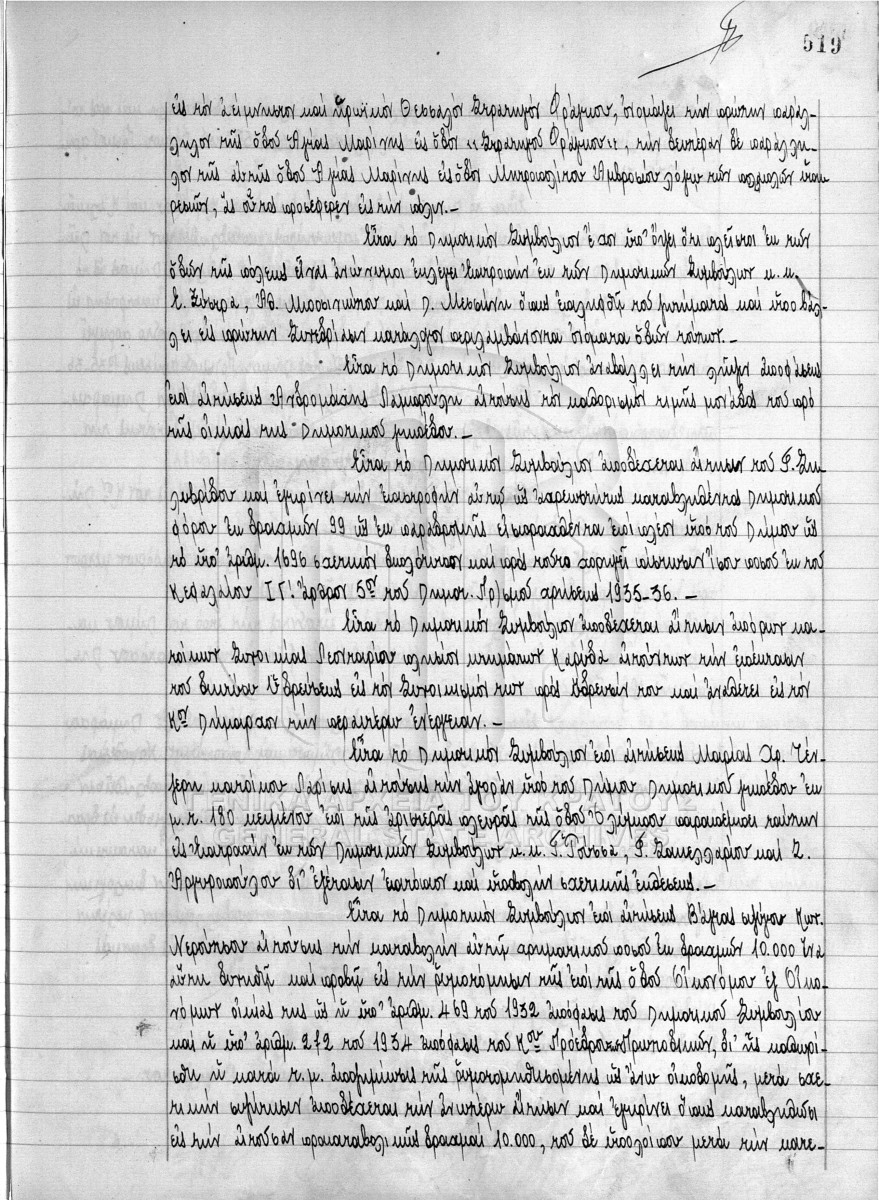 519
εἰς τὸν ἀείμνηστον καὶ ἡρωϊκὸν Θεσσαλὸν Στρατηγὸν Φράγκου, ὀνομάζει τὴν πρώτην παράλ-
ληλον τῆς ὁδοῦ Ἁγίας Μαρίνης εἰς ὁδὸν "Στρατηγοῦ Φράγκου", τὴν δευτέραν δὲ παράλλη-
λον τῆς αὐτῆς ὁδοῦ Ἁγίας Μαρίνης εἰς ὁδὸν Μητροπολίτου Ἀμβροσίου λόγῳ τῶν πολλῶν ὑπη-
ρεσιῶν, ἃς οὗτος προσέφερεν εἰς τὴν πόλιν.-
Εἶτα τὸ Δημοτικὸν Συμβούλιον ἔχον ὑπ' ὄψει ὅτι πλεῖσται ἐκ τῶν
ὁδῶν τῆς πόλεως εἶναι ἀνώνυμοι ἐκλέγει ἐπιτροπὴν ἐκ τῶν Δημοτικῶν Συμβούλων κ.κ.
Μεσσήνη ὅπως ἐπιληφθῇ τοῦ ζητήματος καὶ ὑποβάλ-
λει εἰς πρώτην Συνεδρίασιν κατάλογον περιλαμβάνοντα ὀνόματα ὁδῶν τούτων.-
Εἶτα τὸ Δημοτικὸν Συμβούλιον ἀναβάλλει τὴν λῆψιν ἀποφάσεως
ἐπὶ αἰτήσεως Ἀνδρομάχης αἰτούσης τὸν καθορισμὸν τιμῆς μονάδος τοῦ πρὸ
τῆς οἰκίας της Δημοτικοῦ γηπέδου.-
Εἶτα τὸ Δημοτικὸν Συμβούλιον ἀποδέχεται αἴτησιν τοῦ Γ. Ση-
λυβρίδου καὶ ἐγκρίνει τὴν ἐπιστροφὴν αὐτῷ ὡς ἀχρεωστήτως καταβληθέντος Δημοτικοῦ
φόρου ἐκ δραχμῶν 99 ὡς ἐκ παραδρομῆς εἰσπραχθέντα ἐπὶ πλέον ὑπὸ τοῦ Δήμου ὡς
τὸ ὑπ' ἀριθμ. 1696 σχετικὸν διπλότυπον καὶ πρὸς τοῦτο χορηγεῖ πίστωσιν ἴσου ποσοῦ ἐκ τοῦ
Κεφαλαίου ΙΓ'. ἄρθρον 5ον τοῦ Δημοτ. Πρ)σμοῦ χρήσεως 1935-36.-
Εἶτα τὸ Δημοτικὸν Συμβούλιον ἀποδέχεται αἴτησιν ἀπόρων κα-
τοίκων Συνοικίας Λεονταρίου πλησίον κτημάτων Καρύδα αἰτούντων τὴν ἐπέκτασιν
τοῦ δικτύου ὑδρεύσεως εἰς τὸν Συνοικισμόν των πρὸς ὕδρευσίν του καὶ ἀναθέτει εἰς τὸν
Κον Δήμαρχον τὴν περαιτέρω ἐνέργειαν.-
Εἶτα τὸ Δημοτικὸν Συμβούλιον ἐπὶ αἰτήσεως Μαρίας Χρ. Τέν-
τζερη κατοίκου Λαρίσης αἰτούσης τὴν ἀγορὰν ὑπὸ τοῦ Δήμου Δημοτικοῦ γηπέδου ἐκ
μ.τ. 180 κειμένου ἐπὶ τῆς ἀριστερᾶς πλευρᾶς τῆς ὁδοῦ Ὀλύμπου παραπέμπει ταύτην
εἰς ἐπιτροπὴν ἐκ τῶν Δημοτικῶν Συμβούλων κ.κ. Γ. Ρούσσα, Γ. Σακελλαρίου καὶ Σ.
Ἀργυροπούλου δι' ἐξέτασιν ἐπιτόπιον καὶ ὑποβολὴν σχετικῆς ἐκθέσεως.-
Εἶτα τὸ Δημοτικὸν Συμβούλιον ἐπὶ αἰτήσεως Βάγιας συζύγου Κων.
Νερούτσου αἰτούσης τὴν καταβολὴν αὐτῇ χρηματικοῦ ποσοῦ ἐκ δραχμῶν 10.000 ἵνα
αὕτη δυνηθῇ καὶ προβῇ εἰς τὴν ῥυμοτόμησιν τῆς ἐπὶ τῆς ὁδοῦ Οἰκονόμου ἐξ Οἰκο-
νόμων οἰκίας της ὡς ἡ ὑπ' ἀριθμ. 469 τοῦ 1932 ἀπόφασις τοῦ Δημοτικοῦ Συμβουλίου
καὶ ἡ ὑπ' ἀριθμ. 272 τοῦ 1934 ἀπόφασις τοῦ Κου Προέδρου Πρωτοδικῶν, δι' ἧς καθωρί-
σθη ἡ κατὰ τ.μ. ἀποζημίωσις τῆς ῥυμοτομηθησομένης ὡς ἄνω οἰκοδομῆς, μετὰ σχε-
τικὴν συζήτησιν ἀποδέχεται τὴν ἀνωτέρω αἴτησιν καὶ ἐγκρίνει ὅπως καταβληθῶσι
εἰς τὴν αἰτοῦσαν προκαταβολικῶς δραχμαὶ 10.000, τοῦ δὲ ὑπολοίπου μετὰ τὴν κατε-
ΓΕΝΙΚΑ ΑΡΧΕΙΑ ΤΟΥ ΚΡΑΤΟΥΣ
GENERAL STATE ARCHIVES